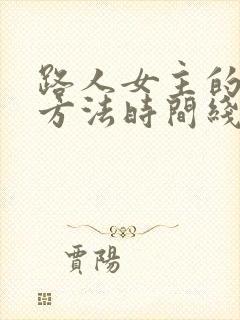 路人女主的
方法時間綫
賈陽